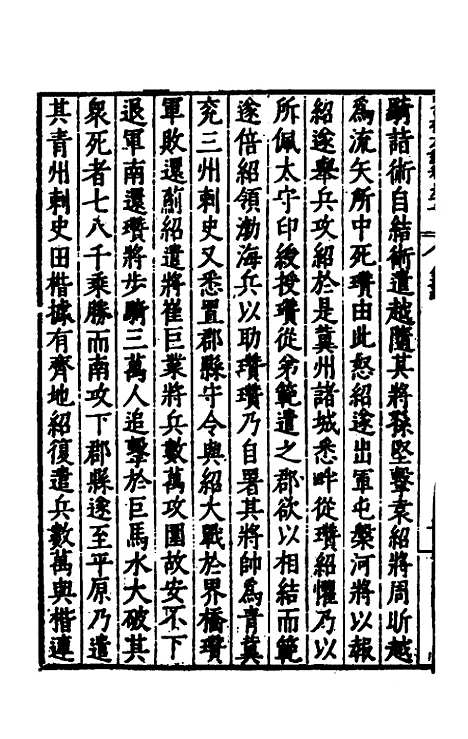 騎詣術自結術遣越隨其將孫堅擊袁紹將周昕越
爲流矢所中死瓚由此怒紹遂出軍屯槃河將以報
紹遂舉兵攻紹於是冀州諸城悉畔從瓚紹懼乃以
所佩太守印綬授瓚從弟範遣之郡欲以相結而範
遂倍紹領勃海兵以助瓚瓚乃自署其將帥爲青冀
兖三州刺史又悉置郡縣守令與紹大戰於界橋瓚
軍敗還薊紹遣將崔巨業將兵數萬攻圍故安不下
退軍南還瓚將步騎三萬人追擊於巨馬水大破其
衆死者七八千乘勝而南攻下郡縣遂至平原乃遣
其青州刺史田楷據有齊地紹復遣兵數萬與楷連